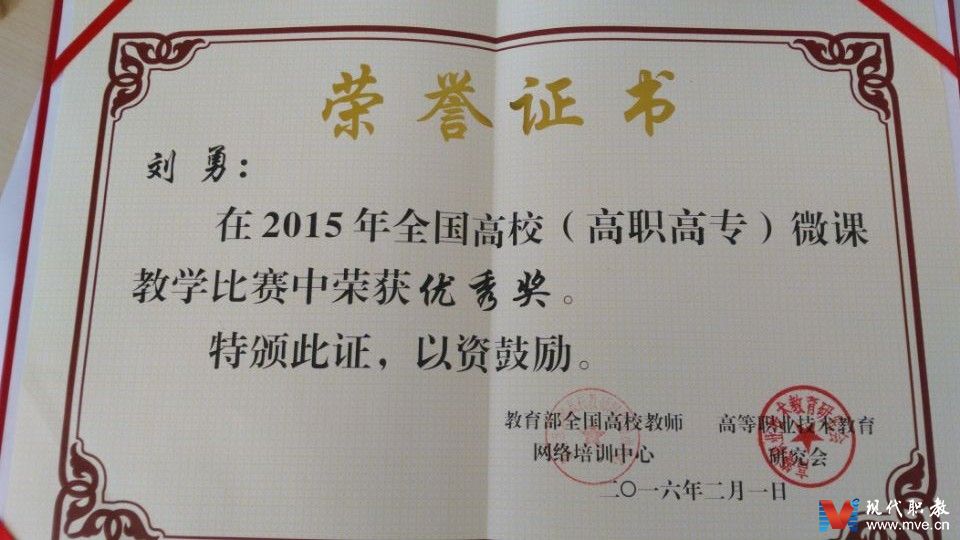 荣誉证书
刘勇：
在2015年全国高校（高职高专）微课
教学比赛中荣获优秀奖。
特颁此证，以资鼓励。
教育部全国高校教师
网络培训中心
高等职业技术教育
研究会
二〇一六年二月一日
现代职教
www.mve.cn